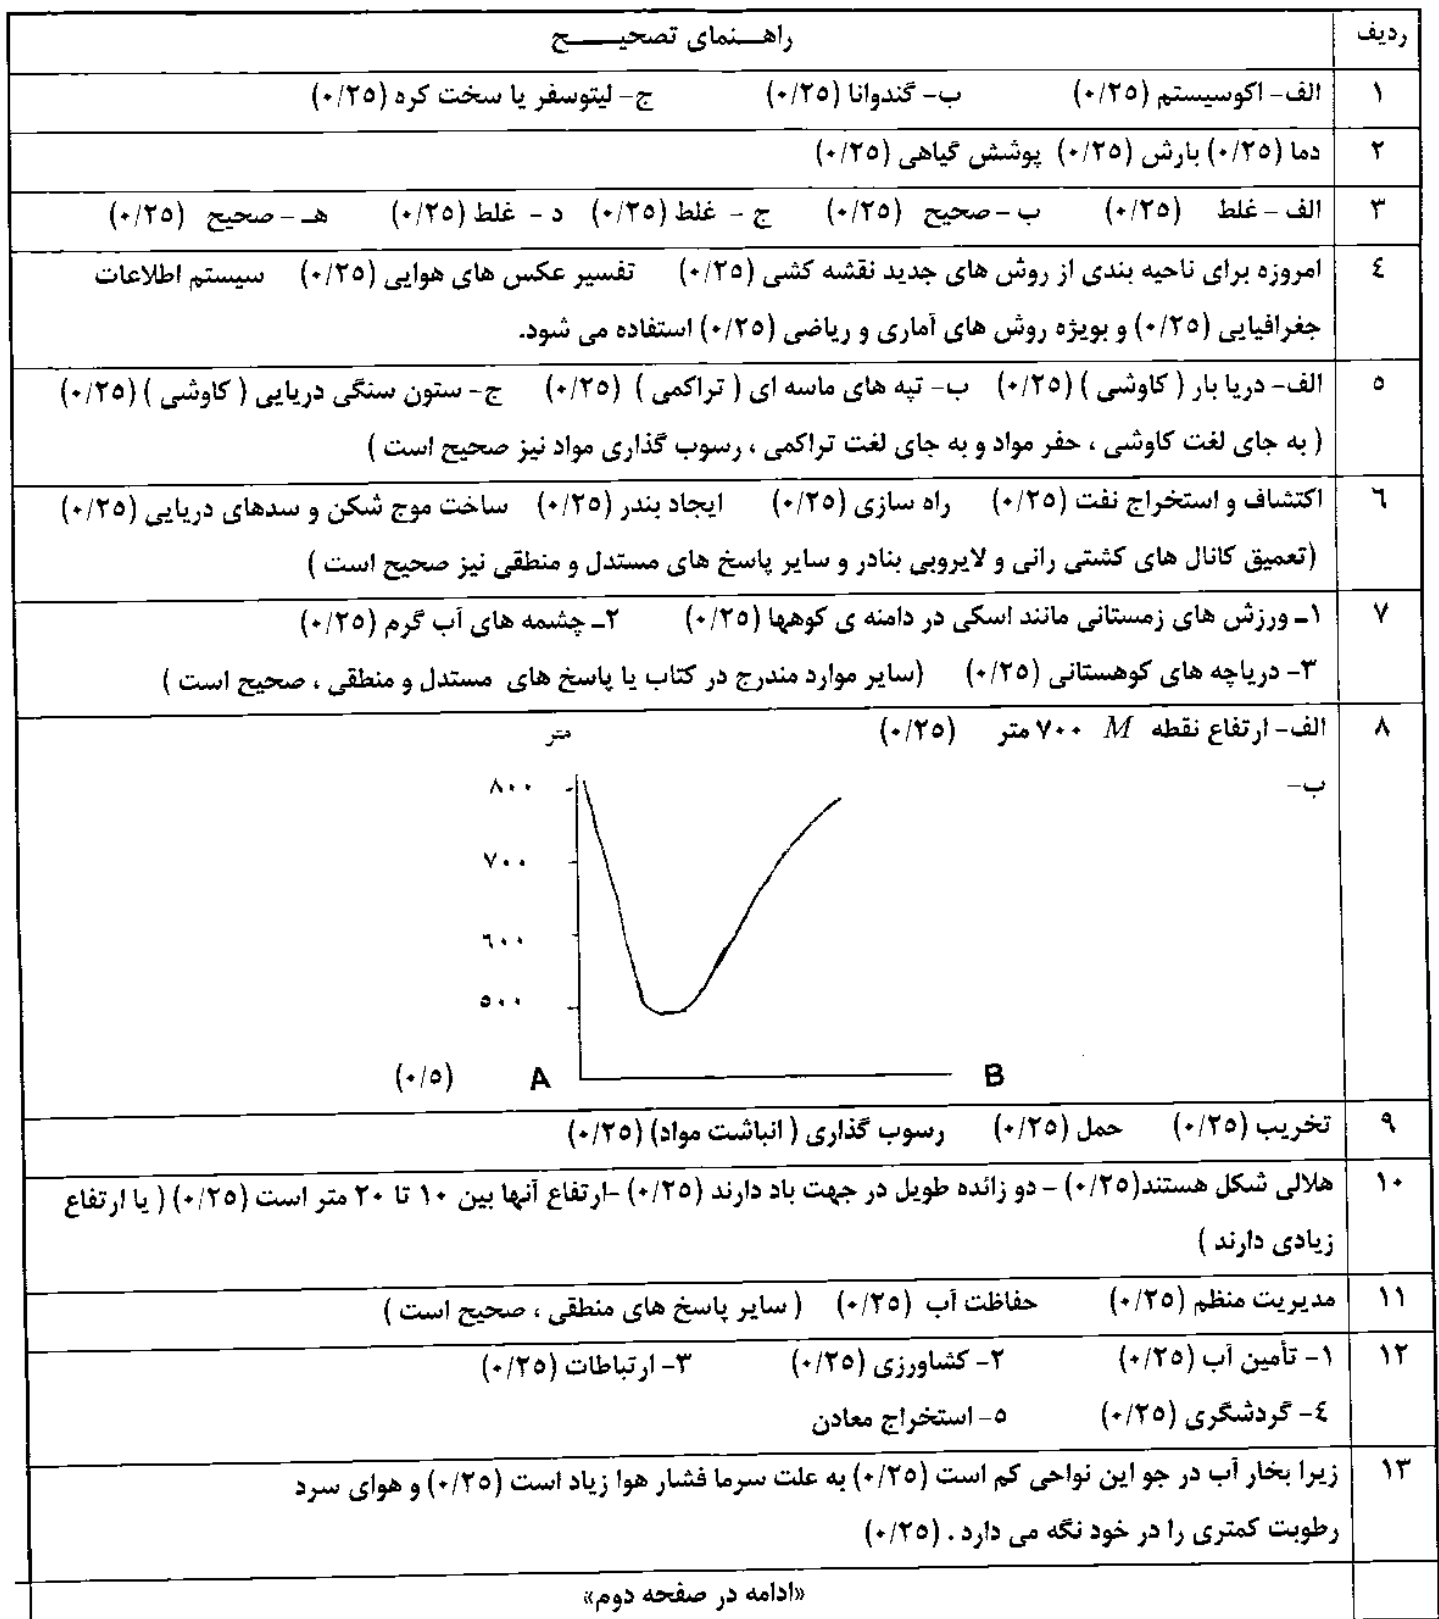 ردیف راهـــنمای تصحیـــــح
۱ الف- اکوسیستم (۰/۲۵) ب- گندوانا (۰/۲۵) ج- لیتوسفر یا سخت کره (۰/۲۵)
۲ دما (۰/۲۵) بارش (۰/۲۵) پوشش گیاهی (۰/۲۵)
۳ الف - غلط (۰/۲۵) ب - صحیح (۰/۲۵) ج - غلط (۰/۲۵) د - غلط (۰/۲۵) هـ - صحیح (۰/۲۵)
۴ امروزه برای ناحیه بندی از روش های جدید نقشه کشی (۰/۲۵) تفسیر عکس های هوایی (۰/۲۵) سیستم اطلاعات
جغرافیایی (۰/۲۵) و بویژه روش های آماری و ریاضی (۰/۲۵) استفاده می شود.
۵ الف- دریا بار ( کاوشی ) (۰/۲۵) ب- تپه های ماسه ای ( تراکمی ) (۰/۲۵) ج- ستون سنگی دریایی ( کاوشی ) (۰/۲۵)
( به جای لغت کاوشی ، حفر مواد و به جای لغت تراکمی ، رسوب گذاری مواد نیز صحیح است )
۶ اکتشاف و استخراج نفت (۰/۲۵) راه سازی (۰/۲۵) ایجاد بندر (۰/۲۵) ساخت موج شکن و سدهای دریایی (۰/۲۵)
(تعمیق کانال های کشتی رانی و لایروبی بنادر و سایر پاسخ های مستدل و منطقی نیز صحیح است )
۷ ۱ـ ورزش های زمستانی مانند اسکی در دامنه ی کوهها (۰/۲۵) ۲ـ چشمه های آب گرم (۰/۲۵)
۳- دریاچه های کوهستانی (۰/۲۵) (سایر موارد مندرج در کتاب یا پاسخ های مستدل و منطقی ، صحیح است )
۸ الف- ارتفاع نقطه M ۷۰۰ متر (۰/۲۵) متر
ب-
۸۰۰
۷۰۰
۶۰۰
۵۰۰
(۰/۵) A B
۹ تخریب (۰/۲۵) حمل (۰/۲۵) رسوب گذاری ( انباشت مواد) (۰/۲۵)
۱۰ هلالی شکل هستند(۰/۲۵) - دو زائده طویل در جهت باد دارند (۰/۲۵) -ارتفاع آنها بین ۱۰ تا ۲۰ متر است (۰/۲۵) ( یا ارتفاع
زیادی دارند )
۱۱ مدیریت منظم (۰/۲۵) حفاظت آب (۰/۲۵) ( سایر پاسخ های منطقی ، صحیح است )
۱۲ ۱- تأمین آب (۰/۲۵) ۲- کشاورزی (۰/۲۵) ۳- ارتباطات (۰/۲۵)
۴- گردشگری (۰/۲۵) ۵- استخراج معادن
۱۳ زیرا بخار آب در جو این نواحی کم است (۰/۲۵) به علت سرما فشار هوا زیاد است (۰/۲۵) و هوای سرد
رطوبت کمتری را در خود نگه می دارد . (۰/۲۵)
«ادامه در صفحه دوم»